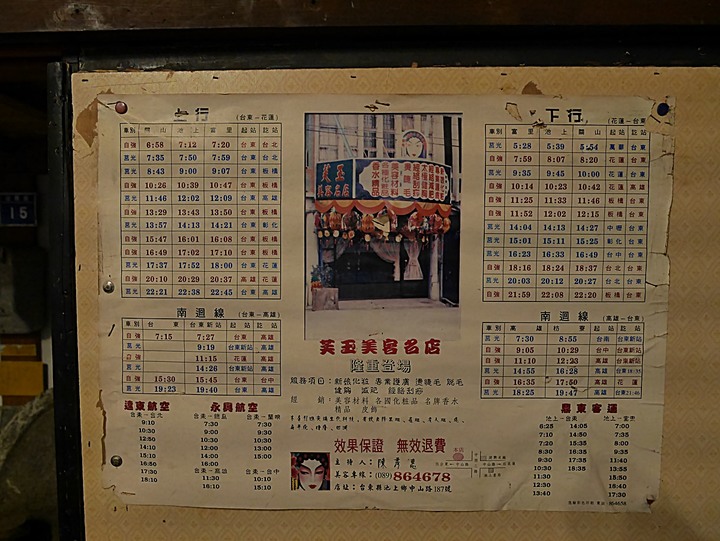 上行 (台東－花蓮)
車別 關山 池上 富里 起站 訖站
自強 6:58 7:12 7:20 台東 台北
莒光 7:35 7:50 7:59 台東 台北
莒光 8:43 9:00 9:07 台東 板橋
自強 10:26 10:39 10:47 台東 板橋
莒光 11:46 12:02 12:09 台東 高雄
自強 13:29 13:43 13:50 台東 板橋
莒光 13:57 14:13 14:21 台東 彰化
自強 15:47 16:01 16:08 台東 板橋
自強 16:49 17:02 17:10 台東 板橋
莒光 17:37 17:52 18:00 台東 花蓮
自強 20:10 20:29 20:37 高雄 花蓮
莒光 22:21 22:38 22:45 台東 高雄
南迴線 (台東－高雄)
車別 台東 台東新站 起站 訖站
自強 7:15 7:27 台東 高雄
莒光 9:19 台東新站 高雄
自強 11:15 花蓮 高雄
莒光 14:26 台東新站 高雄
自強 15:30 15:45 台東 台中
莒光 19:23 19:40 台東 高雄
遠東航空
台東－台北
9:10
10:30
12:50
14:10
15:10
16:50
17:30
18:10
永興航空
7:30
9:30
10:30
12:00
14:00
16:00
台東－高雄
16:10
台東－蘭嶼
7:30
9:00
10:30
13:00
14:30
台東－台中
8:10
15:10
芙玉
美容名店
芙玉美容名店
隆重登場
服務項目：新娘化粧 專業護膚 燙睫毛 脫毛
經銷：美容材料 各國化粧品 名牌香水
精品 皮飾
效果保證 無效退費
主持人：陳彥
美容專線：(089)864678
店址：台東縣池上鄉中山路187號
本店
下行 (花蓮－台東)
車別 富里 池上 關山 起站 訖站
莒光 5:28 5:39 5:54 萬華 台東
自強 7:59 8:07 8:20 花蓮 台東
莒光 9:35 9:45 10:00 花蓮 台東
自強 10:14 10:23 10:42 花蓮 高雄
自強 11:25 11:33 11:46 板橋 台東
自強 11:52 12:02 12:15 板橋 台東
莒光 14:04 14:13 14:27 中壢 台東
莒光 15:01 15:11 15:25 彰化 台東
莒光 16:23 16:33 16:49 台中 台東
自強 18:16 18:24 18:37 台北 台東
莒光 20:03 20:12 20:27 台北 台東
自強 21:59 22:08 22:20 板橋 台東
南迴線 (高雄－台東)
車別 高雄 枋寮 起站 訖站
莒光 7:30 8:55 台南 台東新站
自強 9:05 10:29 台中 台東新站
自強 11:10 12:23 高雄 台東新站
莒光 14:55 16:28 高雄 台東18:35
自強 16:35 17:50 高雄 花蓮
莒光 18:25 19:47 高雄 台東21:46
鼎東客運
6:25 14:05
7:10 14:35
7:20 15:35
9:30 17:35
10:30 18:35
11:30
12:30
13:40
7:00
8:00
10:35
13:55
17:30
15